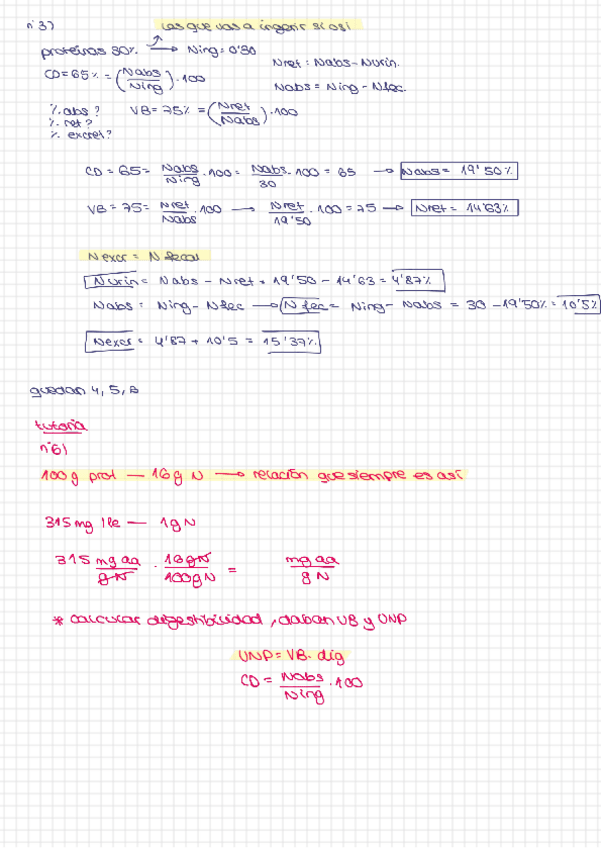 nº3) Las que vas a ingerir si o si
proteinas 30% → Ning = 0'30
Nret = Nabs - Nurin.
CD = 65% = (Nabs/Ning) · 100
Nabs = Ning - Nfec.
% abs? VB = 75% = (Nret/Nabs) · 100
% ret?
% excret?
CD = 65 = Nabs/Ning · 100 = Nabs/30 · 100 = 65 → Nabs = 19'50%
VB = 75 = Nret/Nabs · 100 → Nret/19'50 · 100 = 75 → Nret = 14'63%
Nexcr = N fecal
Nurin = Nabs - Nret = 19'50 - 14'63 = 4'87%
Nabs = Ning - Nfec → N fec = Ning - Nabs = 30 - 19'50% = 10'5%
Nexcr = 4'87 + 10'5 = 15'37%
quedan 4, 5, 8
tutoria
nº6)
100g prot — 16g N → relación que siempre es así
315 mg Ile — 1g N
315 mg aa/g N · 16gN/100gN = mg aa/g N
* calcular digestibilidad, daban VB y UNP
UNP = VB · dig
CD = Nabs/Ning · 100